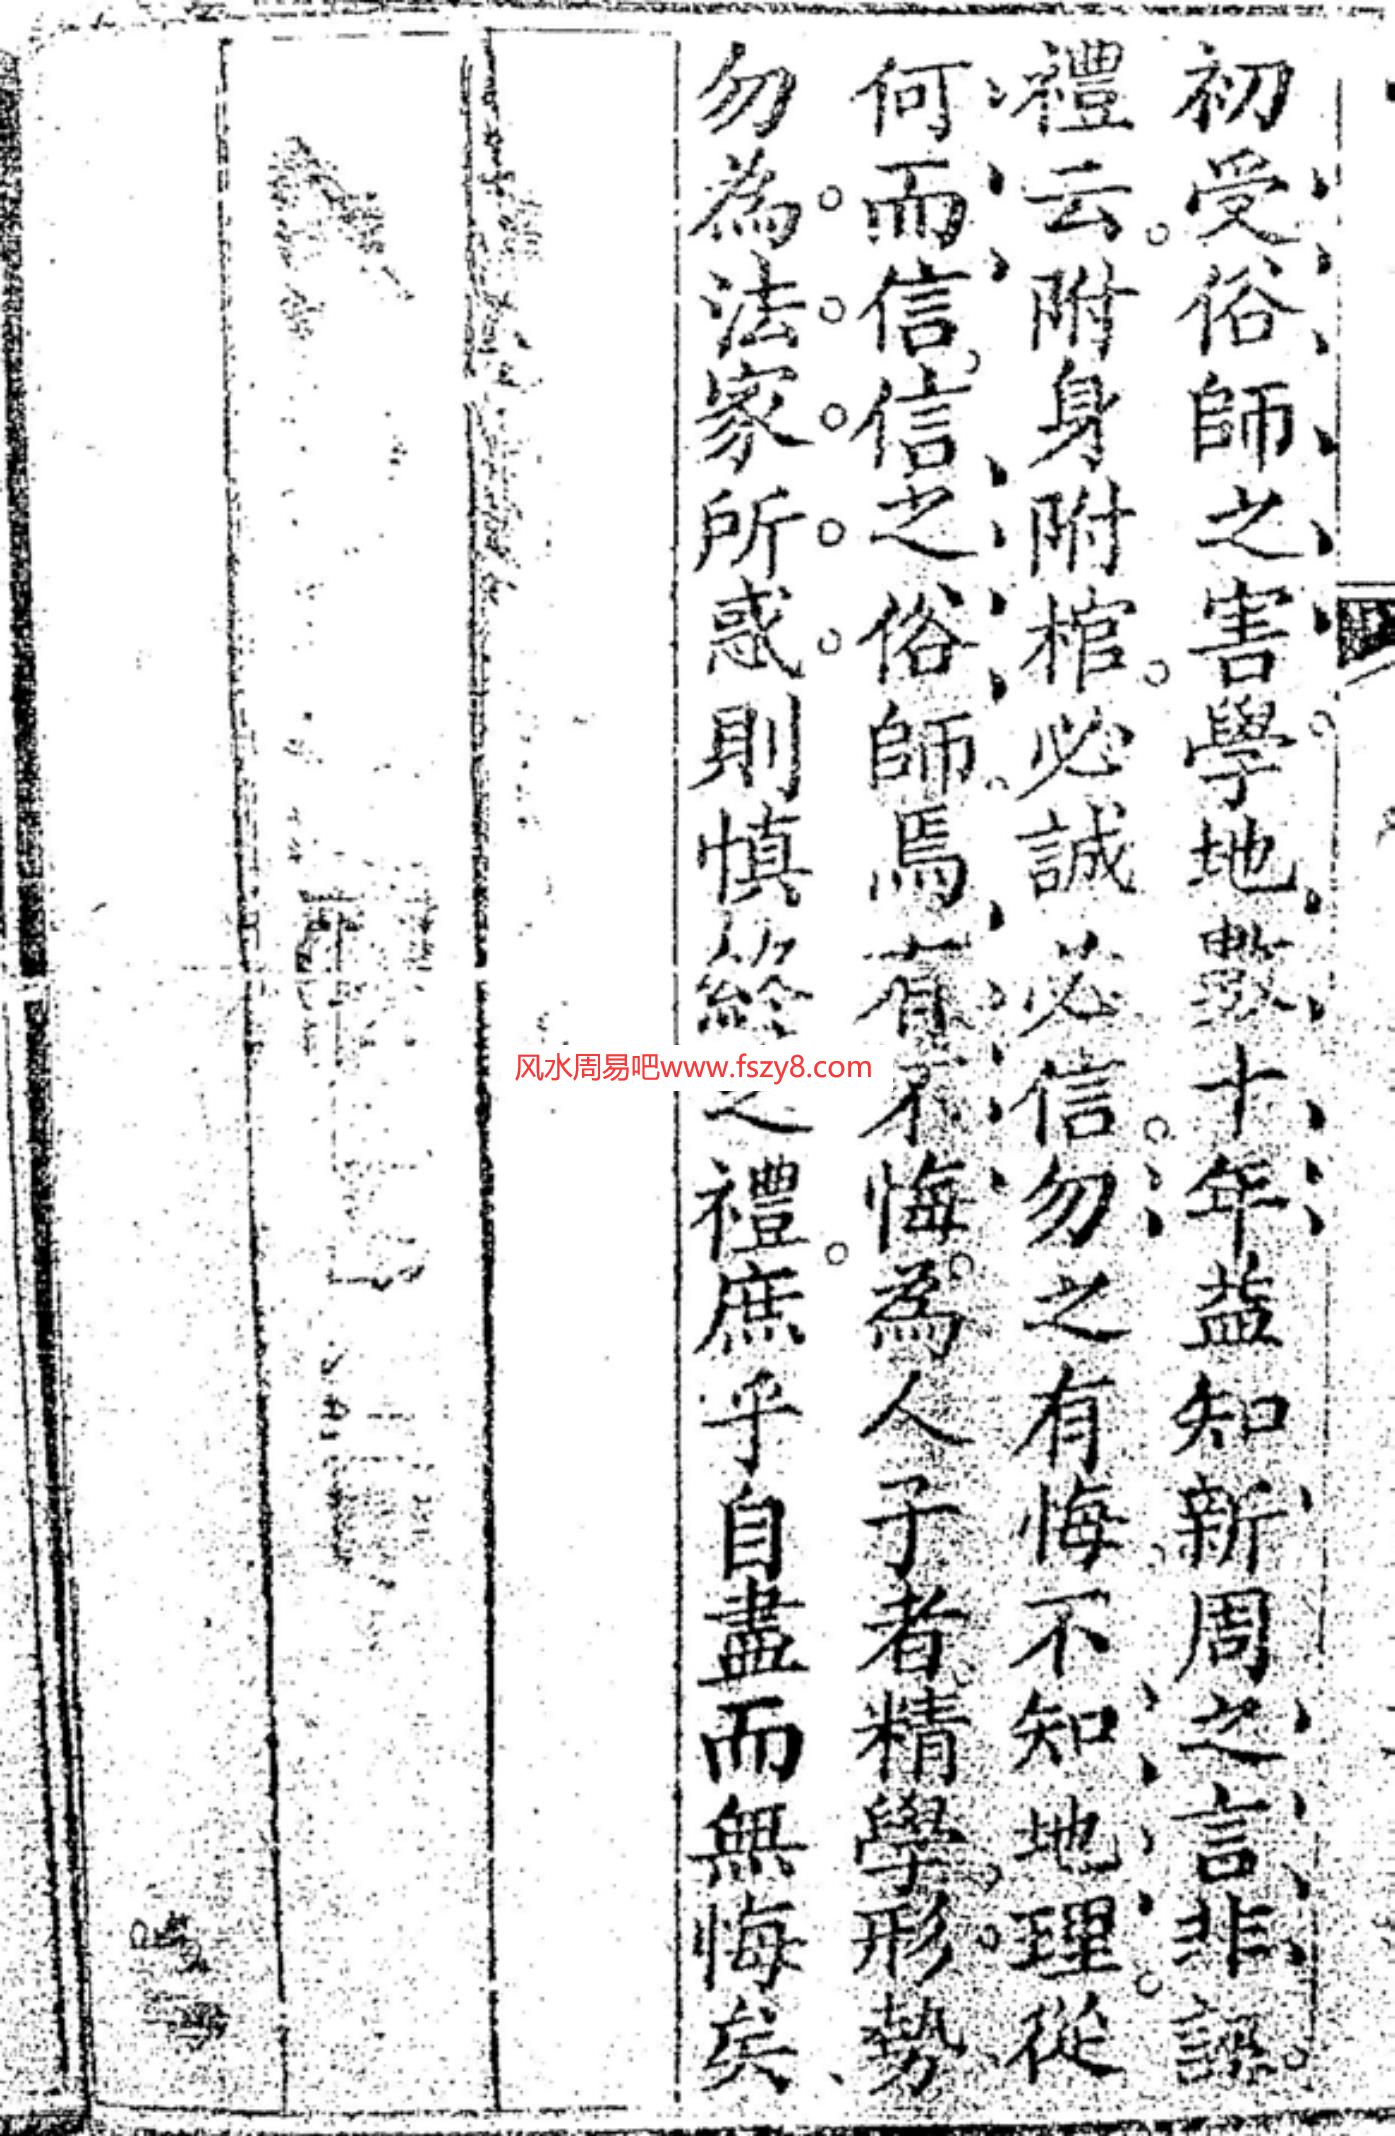 初受俗師之害學地數十年益知新周之言非誣
禮云附身附棺必誠必信勿之有悔不知地理從
何而信信之俗師焉有不悔為人子者精學形勢
勿為法家所惑則慎終之禮庶乎自盡而無悔矣
风水周易吧www.fszy8.com